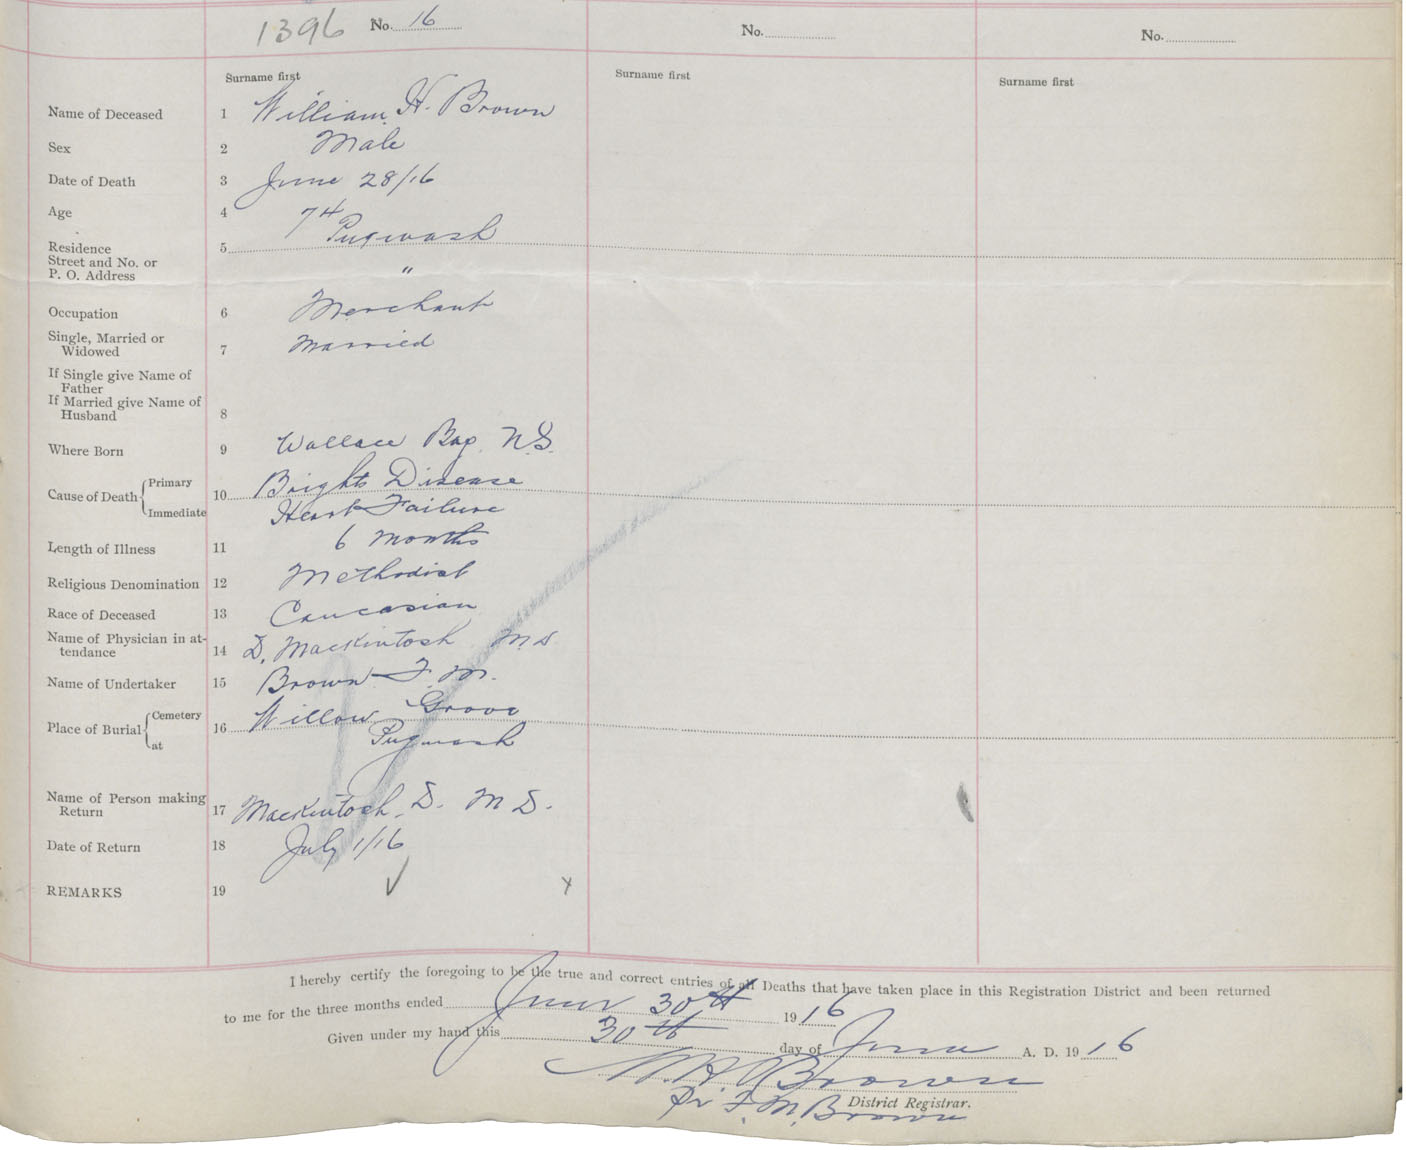 1396 No. 16 No. No.
Surname first Surname first Surname first
Name of Deceased 1 William H. Brown
Sex 2 Male
Date of Death 3 June 28/16
Age 4 74
Residence 5 Pugwash
Street and No. or
P. O. Address "
Occupation 6 Merchant
Single, Married or
Widowed 7 Married
If Single give Name of
Father
If Married give Name of
Husband 8
Where Born 9 Wallace Bay N.S.
Cause of Death Primary 10 Brights Disease
Immediate Heart Failure
Length of Illness 11 6 months
Religious Denomination 12 Methodist
Race of Deceased 13 Caucasian
Name of Physician in at-
tendance 14 D. Mackintosh M.D.
Name of Undertaker 15 Brown F. M.
Place of Burial Cemetery 16 Willow Grove
at Pugwash
Name of Person making
Return 17 Mackintosh, D. M D.
Date of Return 18 July 1/16
REMARKS 19
I hereby certify the foregoing to be the true and correct entries of all Deaths that have taken place in this Registration District and been returned
to me for the three months ended June 30th 1916
Given under my hand this 30th day of June A. D. 1916
W. H. Brown
District Registrar.
Pr F. M. Brown